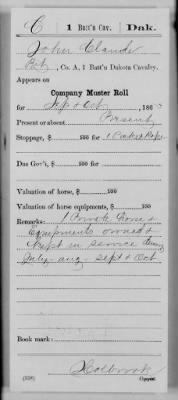 C | 1 Batt'n Cav. | Dak.
John Claude
Pvt, Co. A, 1 Batt'n Dakota Cavalry.
Appears on
Company Muster Roll
for Sept & Oct, 186
Present or absent Present
Stoppage, $ 100 for 1 Picket Rope
Due Gov't, $ 100 for
Valuation of horse, $ 100
Valuation of horse equipments, $ 100
Remarks: 1 Private horse &
Equipments owned &
Kept in service during
July - aug - sept & Oct
Book mark:
Holbrook
(358) Copyist.